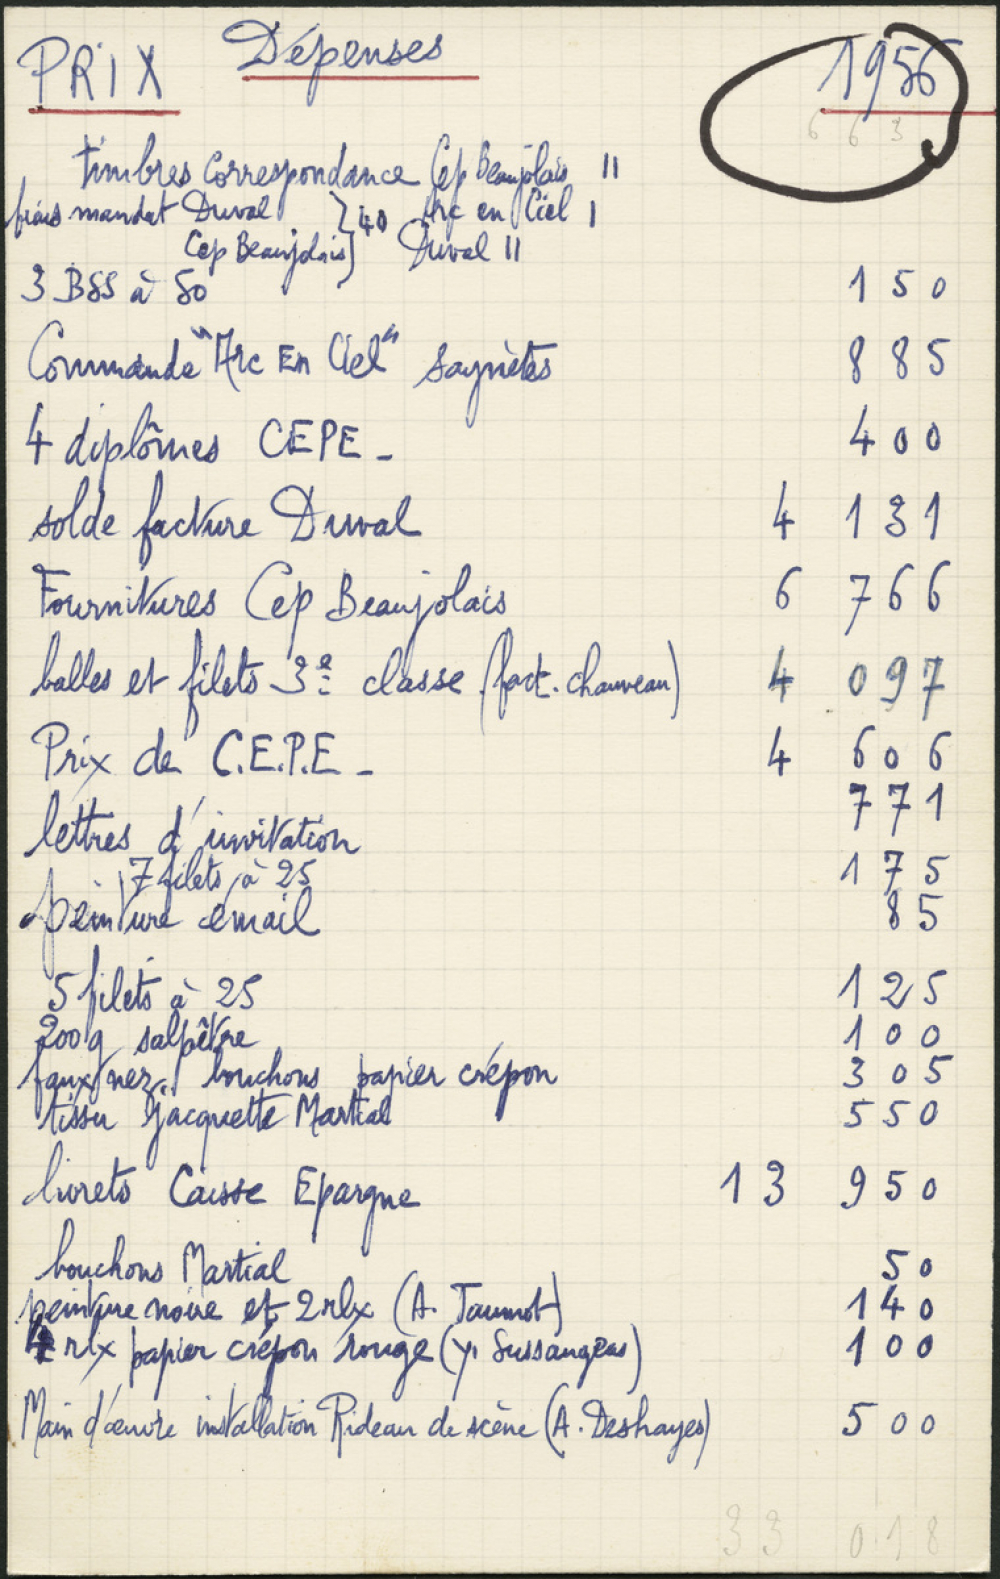 PRIX Dépenses 1956
6 6 3
timbres correspondance Cep Beaujolais II
frais mandat Duval } 40 Arc en Ciel I
Cep Beaujolais Duval II
3 BSS à 50 150
Commande "Arc En Ciel" saynètes 885
4 diplômes CEPE - 400
solde facture Duval 4 131
Fournitures Cep Beaujolais 6 766
balles et filets 3e classe (fact. chauveau) 4 097
Prix de C.E.P.E - 4 606
lettres d'invitation 771
7 filets à 25 175
peinture émail 85
5 filets à 25 125
200g salpêtre 100
faux nez, bouchons papier crépon 305
tissu jacquette Martial 550
livrets Caisse Epargne 13 950
bouchons Martial 50
peinture noire et 2 rlx (A. ) 140
4 rlx papier crépon rouge (Y. ) 100
Main d'œuvre installation Rideau de scène (A. Deshayes) 500
33 018